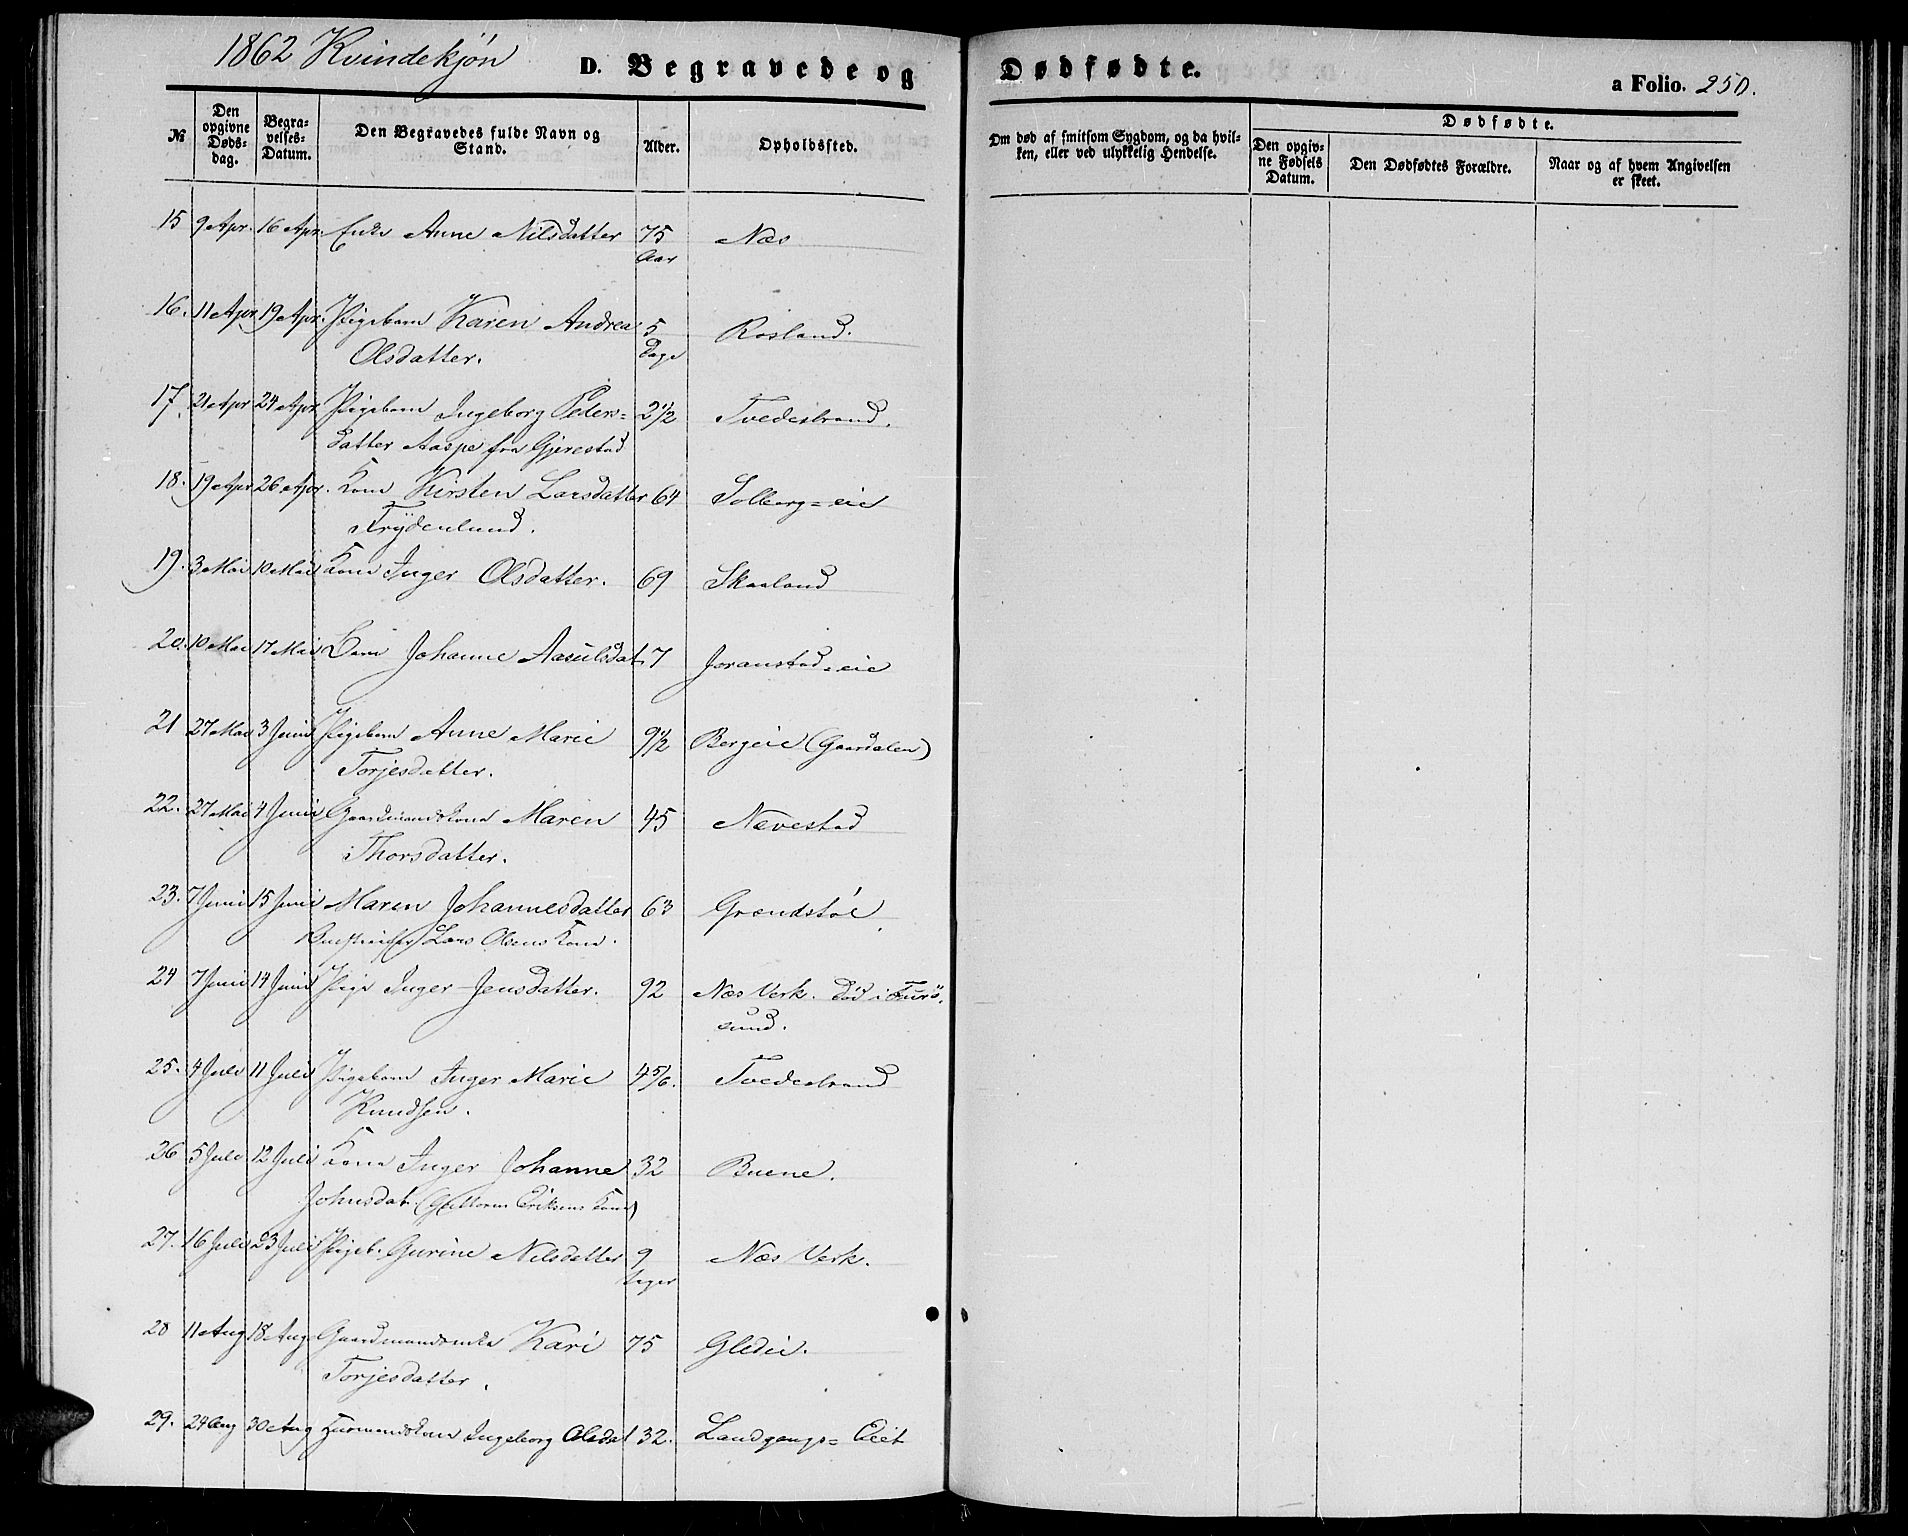 1862 Kvindekjøn
D. Begravede og
Dødfødte.
a Folio. 250.
№
Den opgivne Døds-dag.
Begra-velses-Datum.
Den Begravedes fulde Navn og Stand.
Alder.
Opholdssted.
Om død af smitsom Sygdom, og da hvil-ken, eller ved ulykkelig Hendelse.
Dødfødte.
Den opgiv-ne Fødsels Datum.
Den Dødfødtes Forældre.
Naar og af hvem Angivelsen er skeet.
15 9 Apr. 16 Apr. Enke Anne Nilsdatter 75 Næs
Aar
16. 11 Apr 19 Apr. Pigebarn Karen Andrea 5 Rosland.
Olsdatter. Dage
17. 21 Apr 24 Apr Pigebarn Ingeborg Peders= 2 1/2 Tvedestrand.
datter Aaspe fra Gjerestad
18. 19 Apr 26 Apr. Kone Kirsten Larsdatter 64 Solberg=eie
Frydenlund.
19. 3 Mai 10 Mai Kone Inger Olsdatter. 69 Skaaland
20. 10 Mai 17 Mai Barn Johanne Aasulsdat. 7 Joranstad=eie
21 27 Mai 3 Juni Pigebarn Anne Marie 9 1/2 Bergeie (Gaardalen)
Torjesdatter.
22. 27 Mai 4 Juni Gaardmandskone Maren 45 Nævestad
Thorsdatter.
23. 7 Juni 15 Juni Maren Johannesdatter 63 Grændstøl
Lars Olsens Kone.
24 7 Juni 14 Juni Pige Inger Jensdatter. 92 Næs Verk. Død i Furø
sund.
25. 4 Juli 11 Juli Pigebarn Inger Marie 4 5/6. Tvedestrand
Knudsen.
26 5 Juli 12 Juli Kone Inger Johanne 32 Buene.
Johnsdat. (Guttorm Eriksens Kone)
27. 16 Juli 23 Juli Pigeb. Gurine Nilsdatter 9 Næs Verk.
Uger
28 11 Aug 18 Aug Gaardmandsenke Kari 75 Gledie.
Torjesdatter.
29. 24 Aug 30 Aug Huusmandskone Ingeborg Olsdat 32. Landgangs= Eiet